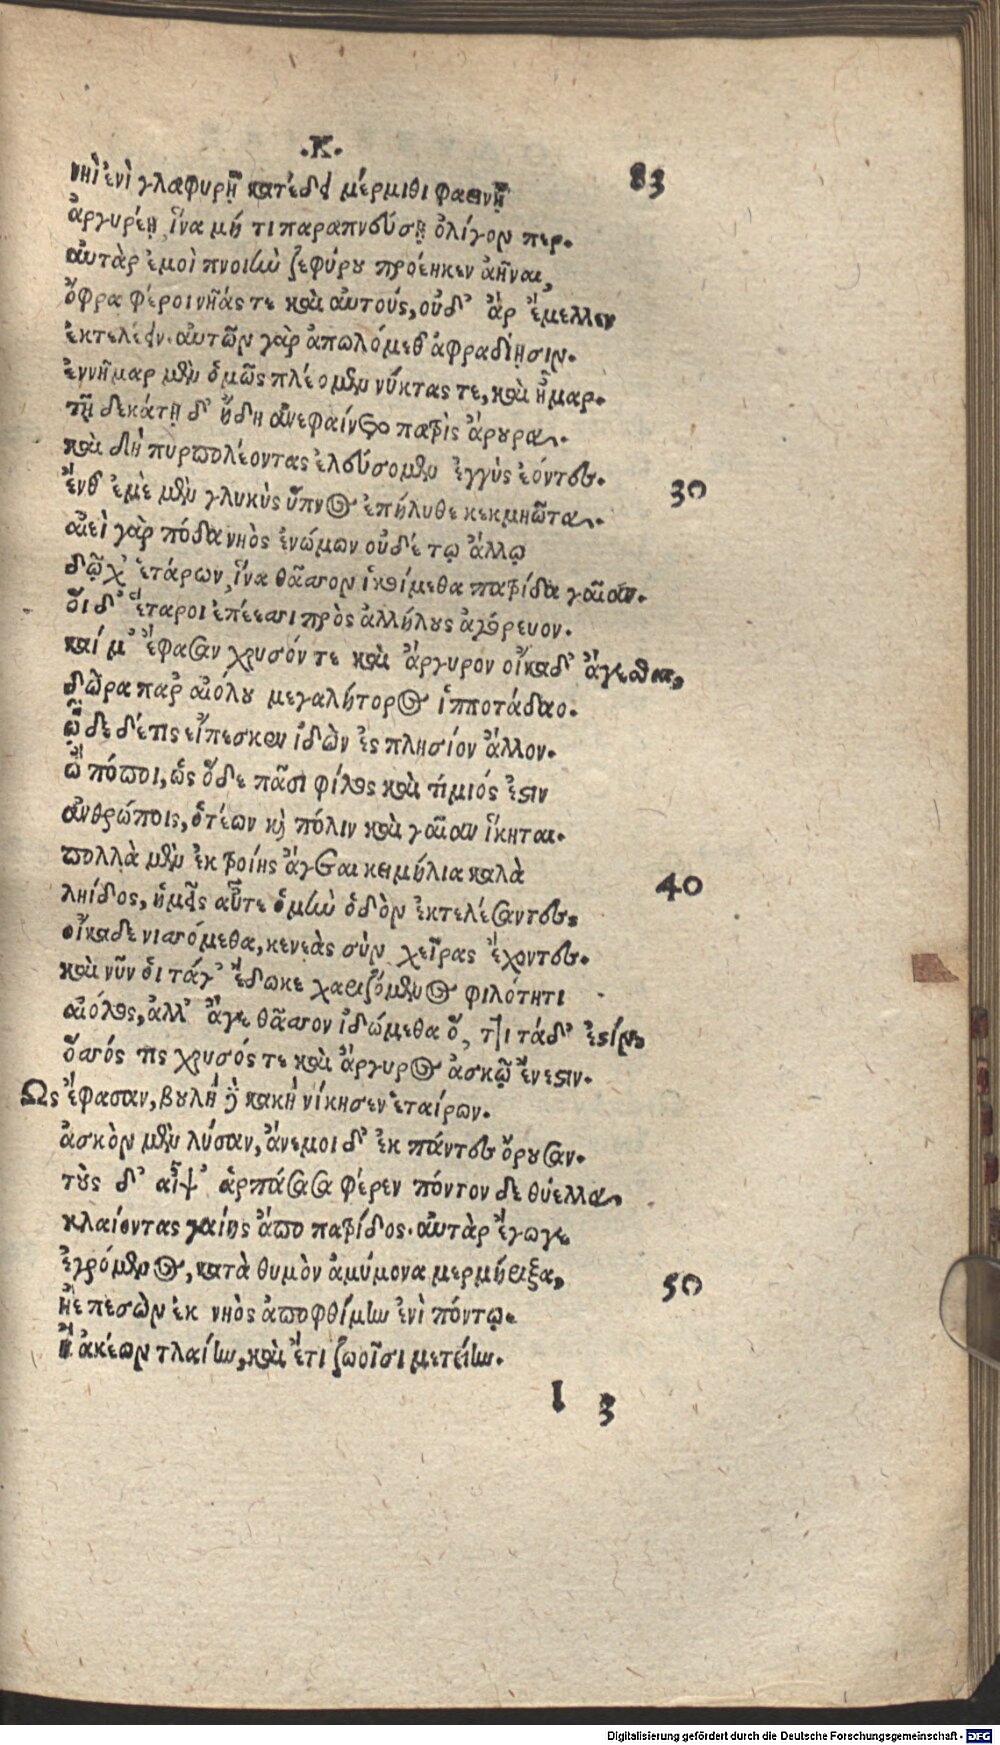 .Κ. 83
νηῒ ἐνὶ γλαφυρῇ κατέδει μέρμιθι φαεινῇ
ἀργυρέῃ, ἵνα μή τι παραπνεύσῃ ὀλίγον περ.
αὐτὰρ ἐμοὶ πνοιὴν ζεφύρου προέηκεν ἀῆναι,
ὄφρα φέροι νῆάς τε καὶ αὐτούς, οὐδ' ἂρ ἔμελλεν
ἐκτελέειν. αὐτῶν γὰρ ἀπωλόμεθ' ἀφραδίῃσιν.
ἐννῆμαρ μὲν ὁμῶς πλέομεν νύκτας τε, καὶ ἦμαρ.
τῇ δεκάτῃ δ' ἤδη ἀνεφαίνετο πατρὶς ἄρουρα.
καὶ δὴ πυρπολέοντας ἐλεύσομεν ἐγγὺς ἐόντες. 30
ἔνθ' ἐμὲ μὲν γλυκὺς ὕπνος ἐπήλυθε κεκμηῶτα.
αἰεὶ γὰρ πόδα νηὸς ἐνώμων οὐδέ τῳ ἄλλῳ
δῶχ' ἑτάρων, ἵνα θᾶσσον ἱκοίμεθα πατρίδα γαῖαν.
οἱ δ' ἕταροι ἐπέεσσι πρὸς ἀλλήλους ἀγόρευον.
καί μ' ἔφασαν χρυσόν τε καὶ ἄργυρον οἴκαδ' ἄγεσθαι,
δῶρα παρ' αἰόλου μεγαλήτορος ἱπποτάδαο.
ὧδε δέ τις εἴπεσκεν ἰδὼν ἐς πλησίον ἄλλον.
ὢ πόποι, ὡς ὅδε πᾶσι φίλος καὶ τίμιός ἐστιν
ἀνθρώποις, ὁτέων κὲ πόλιν καὶ γαῖαν ἵκηται.
πολλὰ μὲν ἐκ τροίης ἄγεται κειμήλια καλὰ 40
ληίδος, ἡμεῖς αὖτε ὁμὴν ὁδὸν ἐκτελέσαντες,
οἴκαδε νισσόμεθα, κενεὰς σὺν χεῖρας ἔχοντες.
καὶ νῦν οἱ τάγ' ἔδωκε χαριζόμενος φιλότητι
αἰόλος, ἀλλ' ἄγε θᾶσσον ἰδώμεθα ὅ, ττι τάδ' ἐστίν,
ὅσσός τις χρυσός τε καὶ ἄργυρος ἀσκῷ ἔνεστιν.
Ὣς ἔφασαν, βουλὴ δὲ κακὴ νίκησεν ἑταίρων.
ἀσκὸν μὲν λύσαν, ἄνεμοι δ' ἐκ πάντες ὄρουσαν.
τοὺς δ' αἶψ' ἁρπάσασα φέρεν πόντον δε θύελλα,
κλαίοντας γαίης ἄπο πατρίδος. αὐτὰρ ἔγωγε
ἐγρόμενος, κατὰ θυμὸν ἀμύμονα μερμήριξα, 50
ἠὲ πεσὼν ἐκ νηὸς ἀποφθίμην ἐνὶ πόντῳ.
ἢ ἀκέων τλαίην, καὶ ἔτι ζωοῖσι μετείην.
I 3
Digitalisierung gefördert durch die Deutsche Forschungsgemeinschaft - DFG